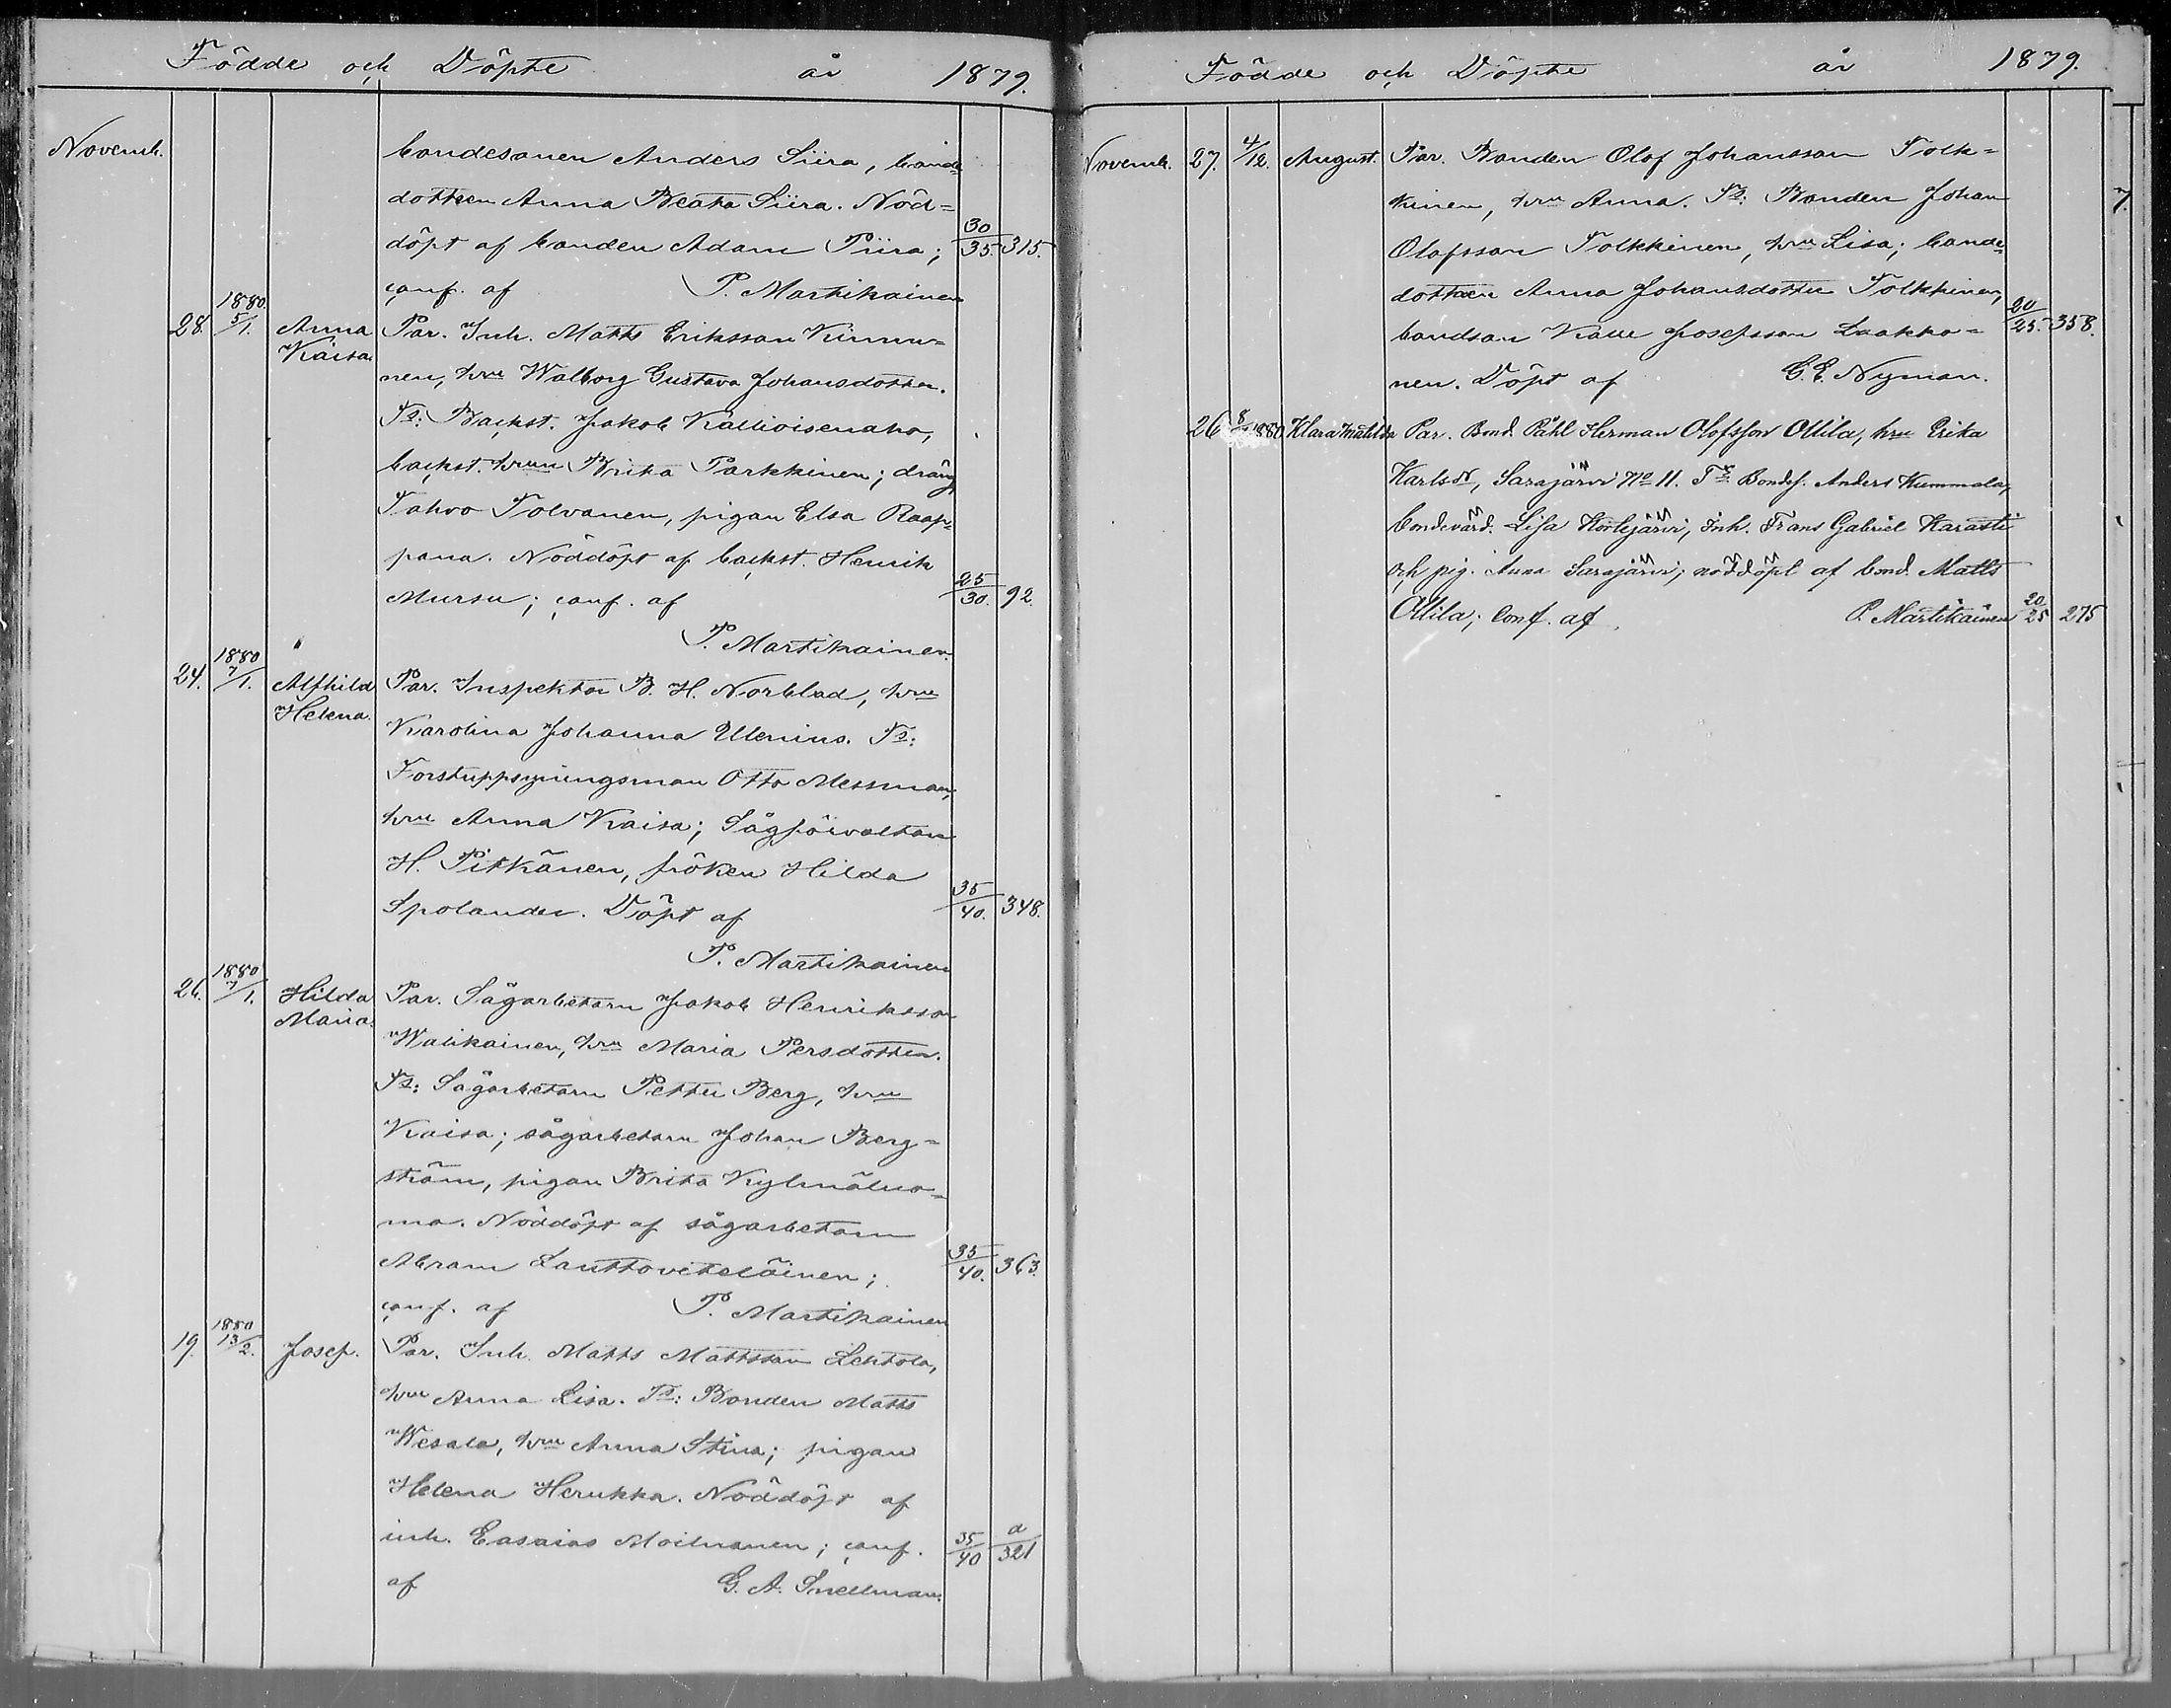 Födde och Döpte år 1879.
Novemb.
bondesonen Anders Siira, bonde-
dottren Anna Beata Siira. Nöd-
döpt af bonden Adam Piira; 30/35. 315.
conf. af P. Martikainen
28. 1880 5/1. Anna Kaisa. Par. Inh. Matts Eriksson Kinnu-
nen, hru Walborg Gustava Johansdotter.
Ts: Backst. Jakob Kallioisenaho,
backst. hrun Brita Parkkinen; dräng
Tahvo Tolvanen, pigan Elsa Raap-
pana. Nöddöpt af backst. Henrik
Mursu; conf. af 25/30. 92.
P. Martikainen.
24. 1880 7/1. Alfhild Helena. Par. Inspektor B. H. Norblad, hru
Karolina Johanna Ulenius. Ts:
Forstuppsyningsman Otto Messman,
hru Anna Kaisa; Sågförvaltare
H. Pitkänen, fröken Hilda
Spolander. Döpt af 35/40. 348.
P. Martikainen
26. 1880 7/1. Hilda Maria. Par. Sågarbetarn Jakob Henriksson
Walikainen, hru Maria Persdotter.
Ts: Sågarbetarn Petter Berg, hru
Kaisa; sågarbetarn Johan Berg-
ström, pigan Brita Kylmäluo-
ma. Nöddöpt af sågarbetarn
Abram Lauttoveteläinen; 35/40. 363.
conf. af P. Martikainen
19. 1880 13/2. Josef. Par. Inh. Matts Mattsson Lehtola,
hru Anna Lisa. Ts: Bonden Matts
Wesala, hru Anna Stina; pigan
Helena Herukka. Nöddöpt af
inh. Easaias Moilnanen; conf. 35/40 a/321
af G. A. Snellman.
Födde och Döpte år 1879.
Novemb. 27. 4/12. August. Par. Bonden Olof Johansson Tolk-
kinen, hru Anna. Ts: Bonden Johan
Olofsson Tolkkinen, hru Lisa; bonde-
dottren Anna Johansdotter Tolkkinen,
bondson Kalle Josefsson Laakko- 20/25. 358.
nen. Döpt af G. E. Nyman.
26 8/1 1880 Klara Matilda Par. Bond. Påhl Herman Olofsson Ollila, hru Erika
Karlsd, Sarajärvi No 11. Ts Bondes. Anders Kummala,
bondevärd. Lisa Kortejärvi, inh. Frans Gabriel Karasti
och pig. Anna Sarajärvi; nöddöpt af bond. Matts
Ollila; conf. af P. Martikainen 20/25 275
7.